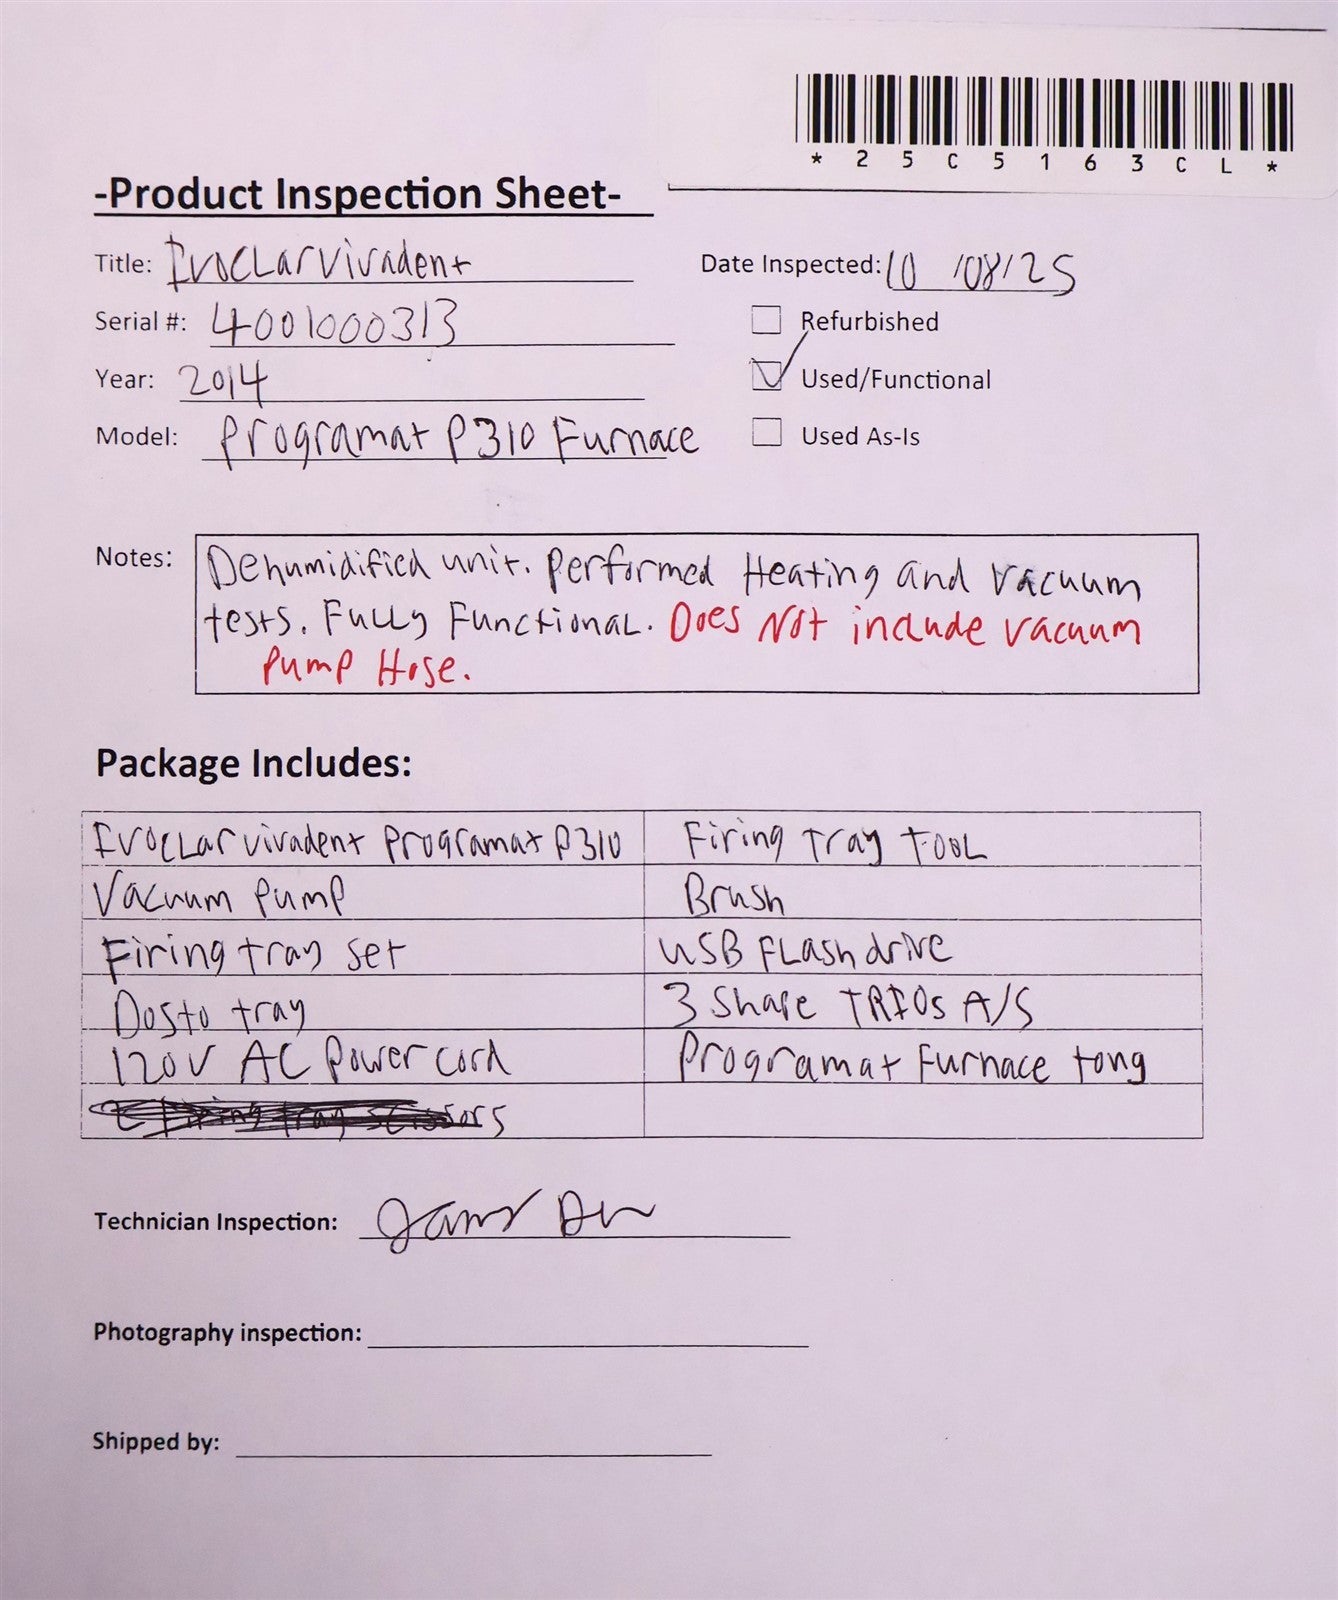 * 2 5 C 5 1 6 3 C L *
-Product Inspection Sheet-
Title: Ivoclar vivadent
Date Inspected: 10 /08/25
Serial #: 4001000313
Refurbished
Year: 2014
Used/Functional
Model: Programat P310 Furnace
Used As-Is
Notes: Dehumidified unit. Performed Heating and Vacuum
tests. Fully Functional. Does Not include vacuum
Pump Hose.
Package Includes:
Ivoclar vivadent Programat P310
Firing tray tool
Vacuum Pump
Brush
Firing tray set
USB Flash drive
Dosto tray
3 Shape TRIOs A/S
120V AC Power cord
Programat Furnace tong
Firing tray scissors
Technician Inspection:
Photography inspection:
Shipped by: